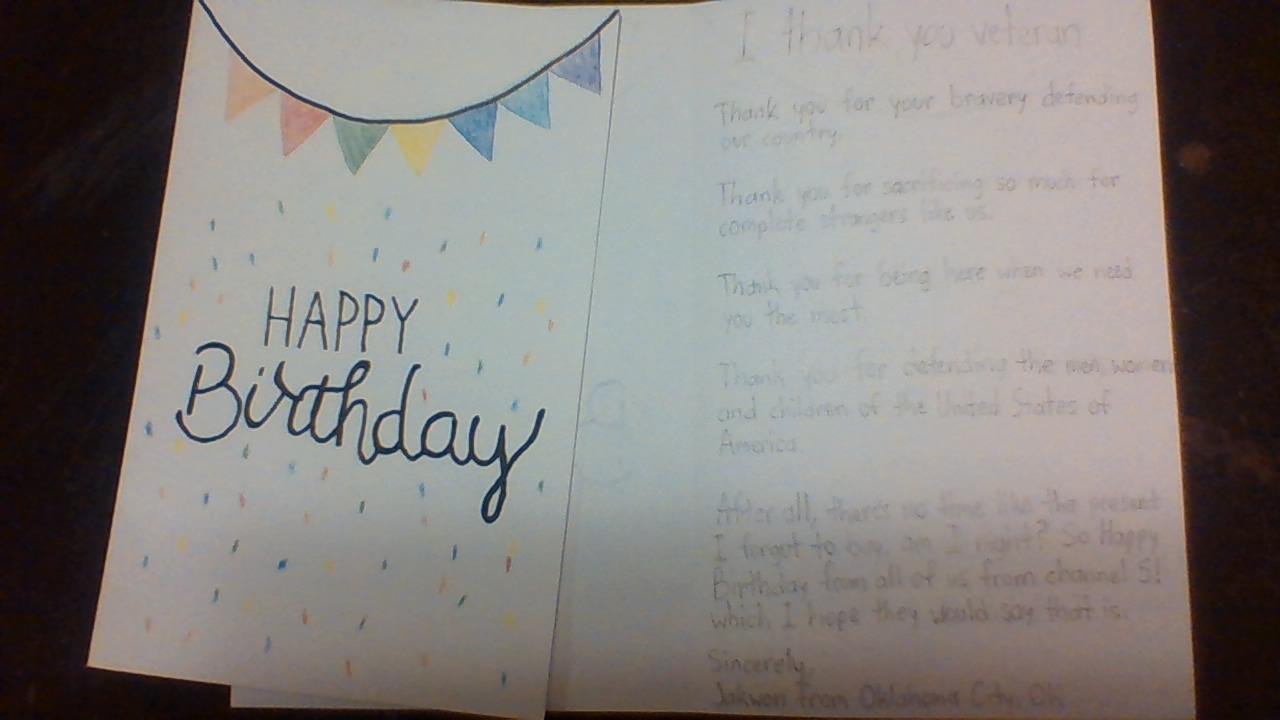 HAPPY
Birthday
I thank you veteran
Thank you for your bravery defending
our country.
Thank you for sacrificing so much for
complete strangers like us.
Thank you for being here when we need
you the most.
Thank you for defending the men, women
and children of the United States of
America.
After all, there's no time like the present
I forgot to buy, am I right? So Happy
Birthday from all of us from channel 5!
which I hope they would say that is.
Sincerely,
Jakwon from Oklahoma City, Ok